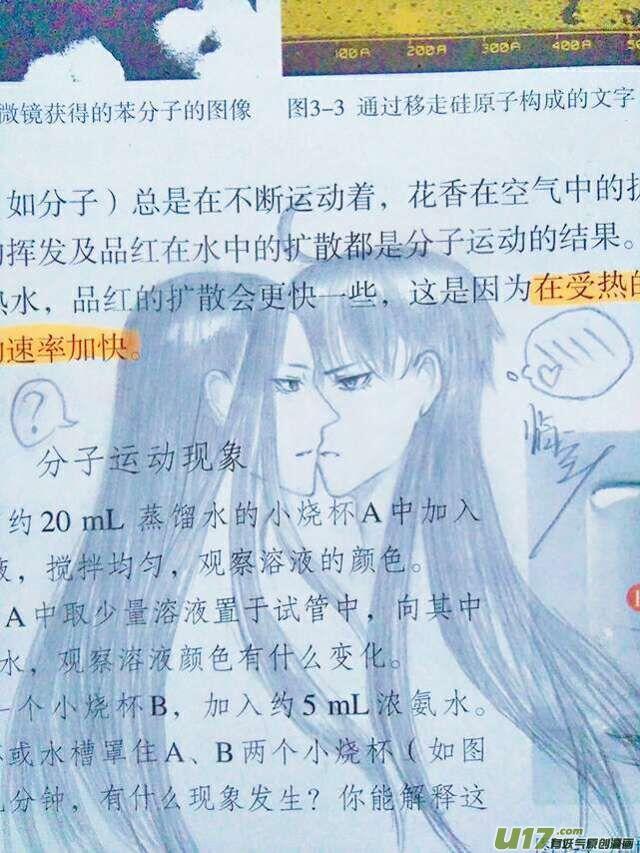 100A 200A 300A 400A
微镜获得的苯分子的图像 图3-3 通过移走硅原子构成的文字
如分子）总是在不断运动着，花香在空气中的扩
挥发及品红在水中的扩散都是分子运动的结果。
热水，品红的扩散会更快一些，这是因为在受热的
速率加快。
?
分子运动现象
约20 mL 蒸馏水的小烧杯A中加入
液，搅拌均匀，观察溶液的颜色。
A中取少量溶液置于试管中，向其中
水，观察溶液颜色有什么变化。
一个小烧杯B，加入约5 mL浓氨水。
或水槽罩住A、B两个小烧杯（如图
几分钟，有什么现象发生？你能解释这
U17.com
有妖气原创漫画